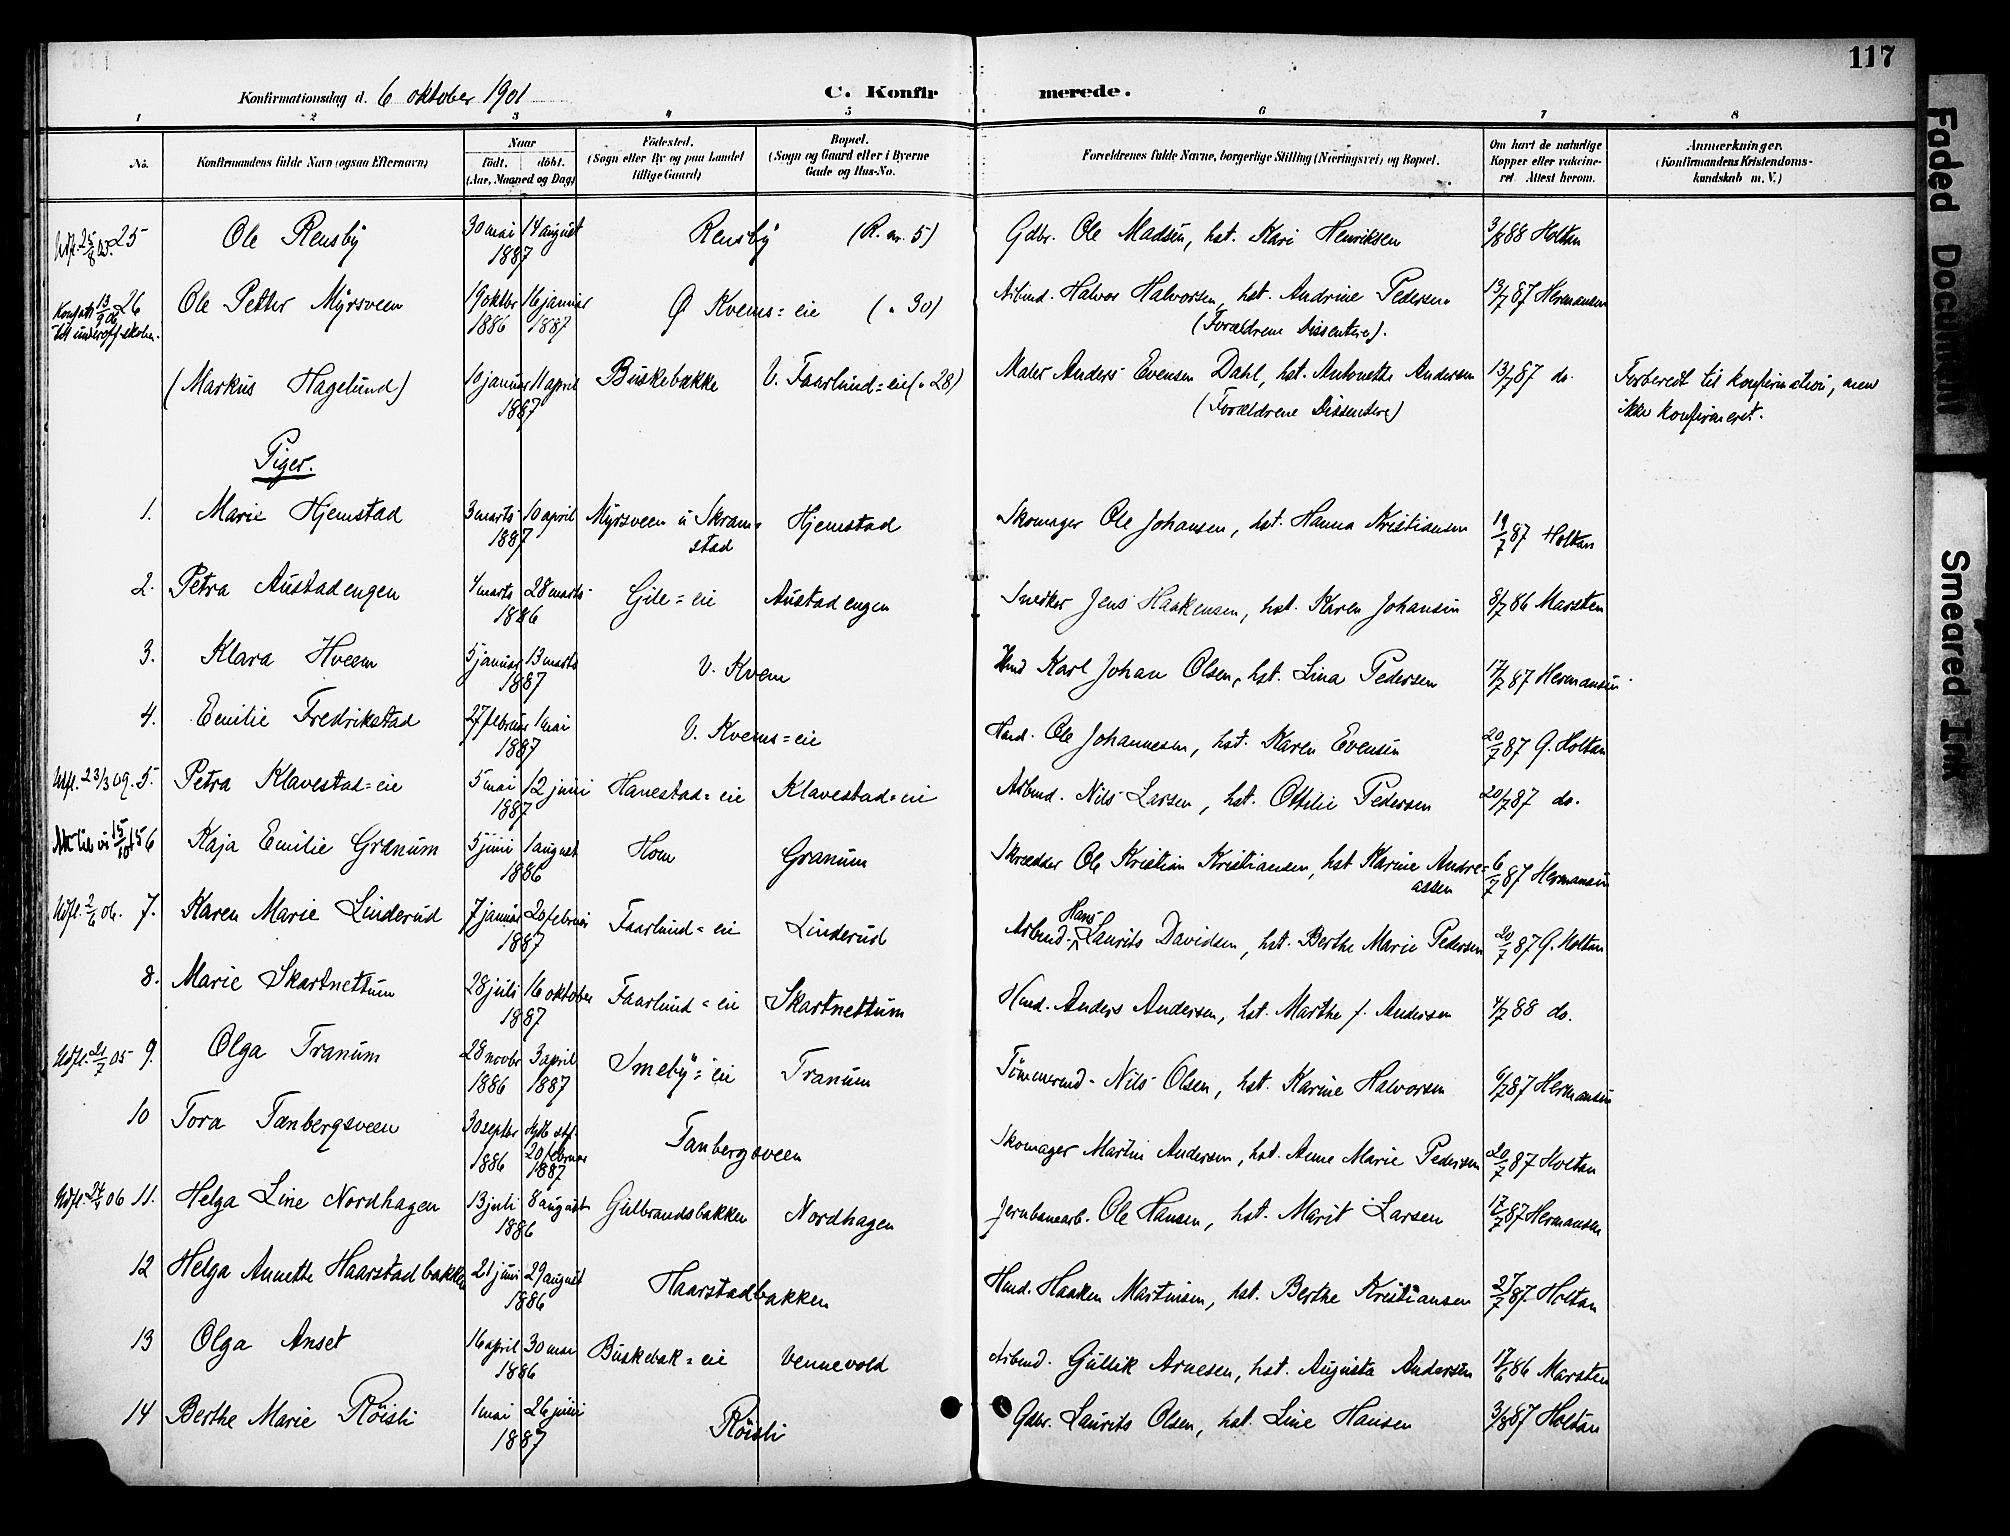 117
Konfirmationsdag d. 6 oktober 1901 C. Konfirmerede.
1 2 3 4 5 6 7 8
No. Konfirmandens fulde Navn (ogsaa Efternavn) Naar født. døbt. (Aar, Maaned og Dag) Fødested. (Sogn eller By og paa Landet tillige Gaard) Bopæl. (Sogn og Gaard eller i Byerne Gade og Hus-No. Forældrenes fulde Navne, borgerlige Stilling (Næringsvei) og Bopæl. Om havt de naturlige Kopper eller vakcineret. Attest herom. Anmærkninger. (Konfirmandens Kristendomskundskab m. V.)
25 Ole Rensby 30 mai 14 august 1887 Rensby (R. nr. 5) Gdbr. Ole Madsen, hst. Kari Henriksen 3/8 88 Holtan
26 Ole Petter Myrsveen 19 oktbr 1886 16 januar 1887 Ø Kvems=eie (" 30) Arbmd. Halvor Halvorsen, hst. Andrine Pedersen 13/7 87 Hermansen
(Forældrene Dissentere).
(Markus Hagelund) 10 januar 11 april 1887 Buskebække V. Faarlund=eie (" 28) Maler Anders Evensen Dahl, hst. Antonette Andersen 13/7 87 do. Forberedt til konfirmation, men
(Forældrene Dissentere) ikke konfirmeret.
Piger.
1. Marie Hjemstad 3 marts 10 april 1887 Myrsveen u Skramstad Hjemstad Skomager Ole Johansen, hst. Hanna Kristiansen 19/7 87 Holtan
2. Petra Austadengen 4 marts 28 marts 1886 Gile=eie Austadengen Snedker Jens Haakensen, hst. Karen Johansen 8/7 86 Marsten
3. Klara Hveem 5 januar 13 marts 1887 V. Kvem Hmd Karl Johan Olsen, hst. Lina Pedersen 17/7 87 Hermansen
4. Emilie Fredrikstad 27 februar 1 mai 1887 V. Kvems=eie Hmd. Ole Johannesen, hst. Karen Evensen 20/7 87 G. Holtan
Udfl. 23/3 09. 5. Petra Klavestad=eie 5 mai 12 juni 1887 Hanestad=eie Klavestad=eie Arbmd. Nils Larsen, hst. Ottilie Pedersen 20/7 87 do.
6 Kaja Emilie Granum 5 juni 1 august 1886 Hom Granum Skrædder Ole Kristian Kristiansen, hst Karine Andreassen 6/7 87 Hermansen
Udfl. 2/6 06. 7. Karen Marie Linderud 7 januar 20 februar 1887 Faarlund=eie Linderud Arbmd. Hans Laurits Davidsen, hst. Berthe Marie Pedersen 20/7 87 G. Holtan
8. Marie Skartnettum 28 juli 16 oktober 1887 Faarlund=eie Skartnettum Hmd. Anders Andersen, hst. Marthe f. Andersen 4/7 88 do.
9. Olga Tranum 28 novbr 1886 3 april 1887 Smeby=eie Tranum Tømmermd. Nils Olsen, hst. Karine Halvorsen 6/7 87 Hermansen
10 Tora Tanbergsveen 30 septbr 1886 20 februar 1887 Tanbergsveen Skomager Martin Andersen, hst. Anne Marie Pedersen 20/7 87 Holtan
11. Helga Line Nordhagen 13 juli 8 august 1886 Gulbrandsbakken Nordhagen Jernbanearb. Ole Hansen, hst. Marit Larsen 17/7 87 Hermansen
12 Helga Annette Haarstadbakken 21 juni 29 august 1886 Haarstadbakken Hmd. Haaken Martinsen, hst. Berthe Kristiansen 27/7 87. Holtan
13 Olga Anset 16 april 30 mai 1886 Buskebak=eie Vennevold Arbmd. Gullik Arnesen, hst. Augusta Andersen 17/6 86 Marsten
14 Berthe Marie Röisli 1 mai 26 juni 1887 Röisli Gdbr. Laurits Olsen, hst. Line Hansen 3/8 87 Holtan
Faded Document
Smeared Ink